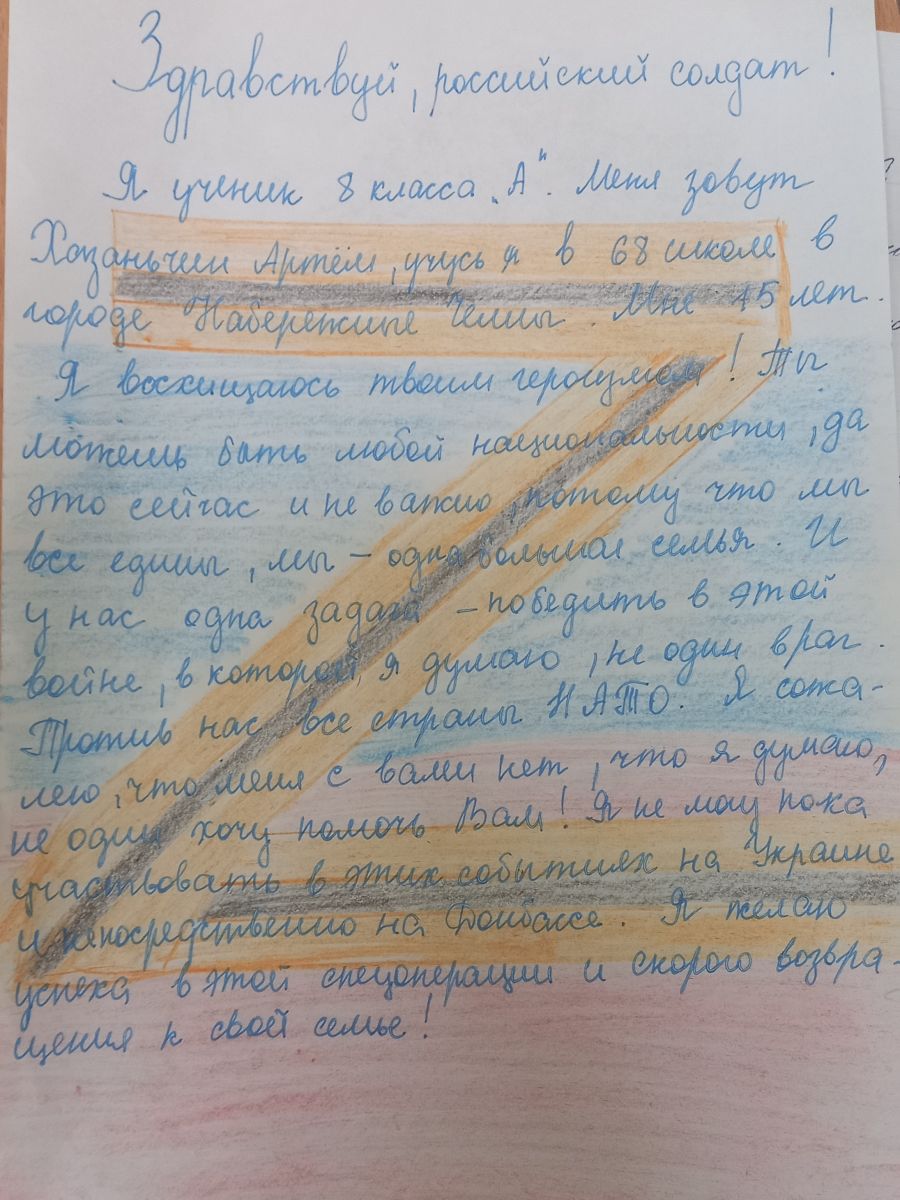 Здравствуй, российский солдат!
Я ученик 8 класса „А". Меня зовут
Хазаньчеи Артём, учусь я в 68 школе в
городе Набережные Челны. Мне 15 лет.
Я восхищаюсь твоим героизмом! Ты
можешь быть любой национальности, да
это сейчас и не важно, потому что мы
все едины, мы – одна большая семья. И
у нас одна задача – победить в этой
войне, в которой, я думаю, не один враг.
Против нас все страны НАТО. Я сожа-
лею, что меня с вами нет, что я думаю,
не один хочу помочь Вам! Я не могу пока
участвовать в этих событиях на Украине
и непосредственно на Донбассе. Я желаю
успеха в этой спецоперации и скорого возвра-
щения к свой семье!